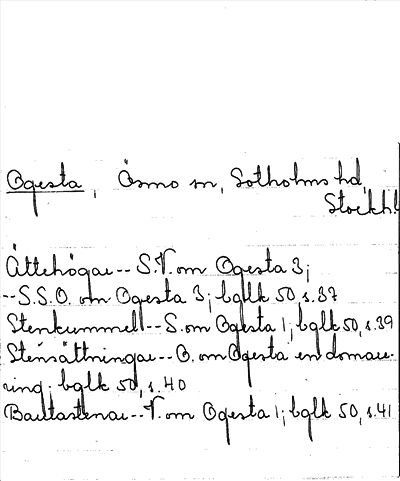 Ogesta, Ösmo sn, Sotholms hd,
Stockh.l
Ättehögar -- S.V. om Ogesta 3;
-- S.S.O. om Ogesta 3; bglk 50, s.37
Stenkummel -- S. om Ogesta 1; bglk 50, s.39
Stensättningar -- O. om Ogesta en domar-
ring; bglk 50, s.40
Bautastenar -- V. om Ogesta 1; bglk 50, s.41